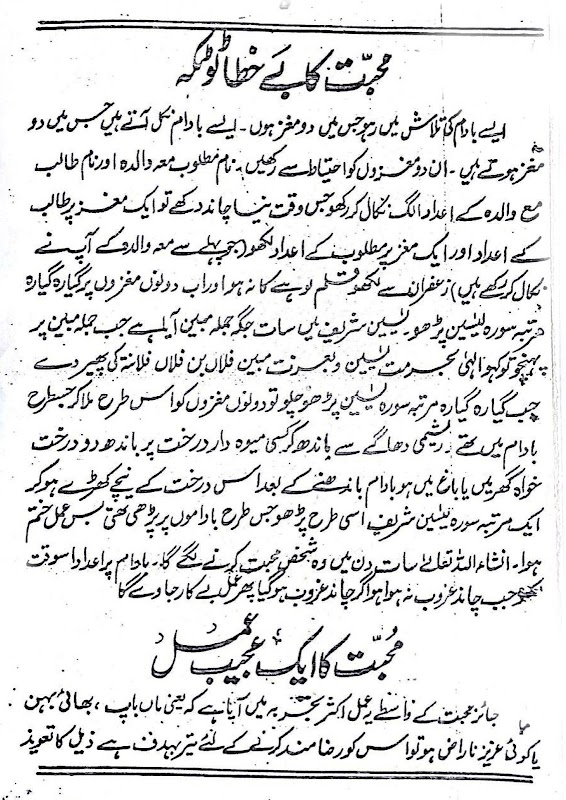 محبّت کا بے خطا ٹوٹکہ
ایسے بادام کی تلاش میں رہو جس میں دو مغز ہوں۔ ایسے بادام نکل آتے ہیں جس میں دو
مغز ہوتے ہیں۔ ان دو مغزوں کو احتیاط سے رکھیں۔ نام مطلوب معہ والدہ اور نام طالب
مع والدہ کے اعداد الگ نکال کر رکھو جس وقت نیا چاند دکھے تو ایک مغز پر طالب
کے اعداد اور ایک مغز پر مطلوب کے اعداد لکھو (جو پہلے سے معہ والدہ کے آپ نے
نکال کر رکھے ہیں) زعفران سے لکھو قلم لوہے کا نہ ہو اور اب دولوں مغزوں پر گیارہ گیارہ
مرتبہ سورہ یٰسین پڑھو یٰسین شریف میں سات جگہ جملہ مبین آیا ہے جب جملہ مبین پر
پہنچو تو کہو الٰہی بحرمت یٰسین و بعزت مبین فلاں بن فلاں فلانۃ کی پھیر دے
جب گیارہ گیارہ مرتبہ سورہ یٰسین پڑھ چلو تو دولوں مغزوں کو اس طرح ملا کر جسطرح
بادام میں تھے۔ ریشمی دھاگے سے باندھ کر کسی میوہ دار درخت پر باندھ دو درخت
خواہ گھر میں یا باغ میں ہو بادام باندھنے کے بعد اس درخت کے نیچے کھڑے ہو کر
ایک مرتبہ سورہ یٰسین شریف اسی طرح پڑھو جس طرح باداموں پر پڑھی تھی بس عمل ختم
ہوا۔ انشاء اللہ تعالےٰ سات دن میں وہ شخص محبت کرنے لگے گا۔ بادام پر اعداد اسوقت
لکھو جب چاند غروب نہ ہوا ہو اگر چاند غروب ہو گیا پھر عمل بے کار جاوے گا
مُحبّت کا ایک عجیب عمل
جائز محبت کے واسطے یہ عمل اکثر تجربہ میں آیا ہے کہ یعنی ماں باپ، بھائی بہن
یا کوئی عزیز ناراض ہو تو اس کو رضامند کرنے کے لئے تیر بہدف ہے ذیل کا تعویذ